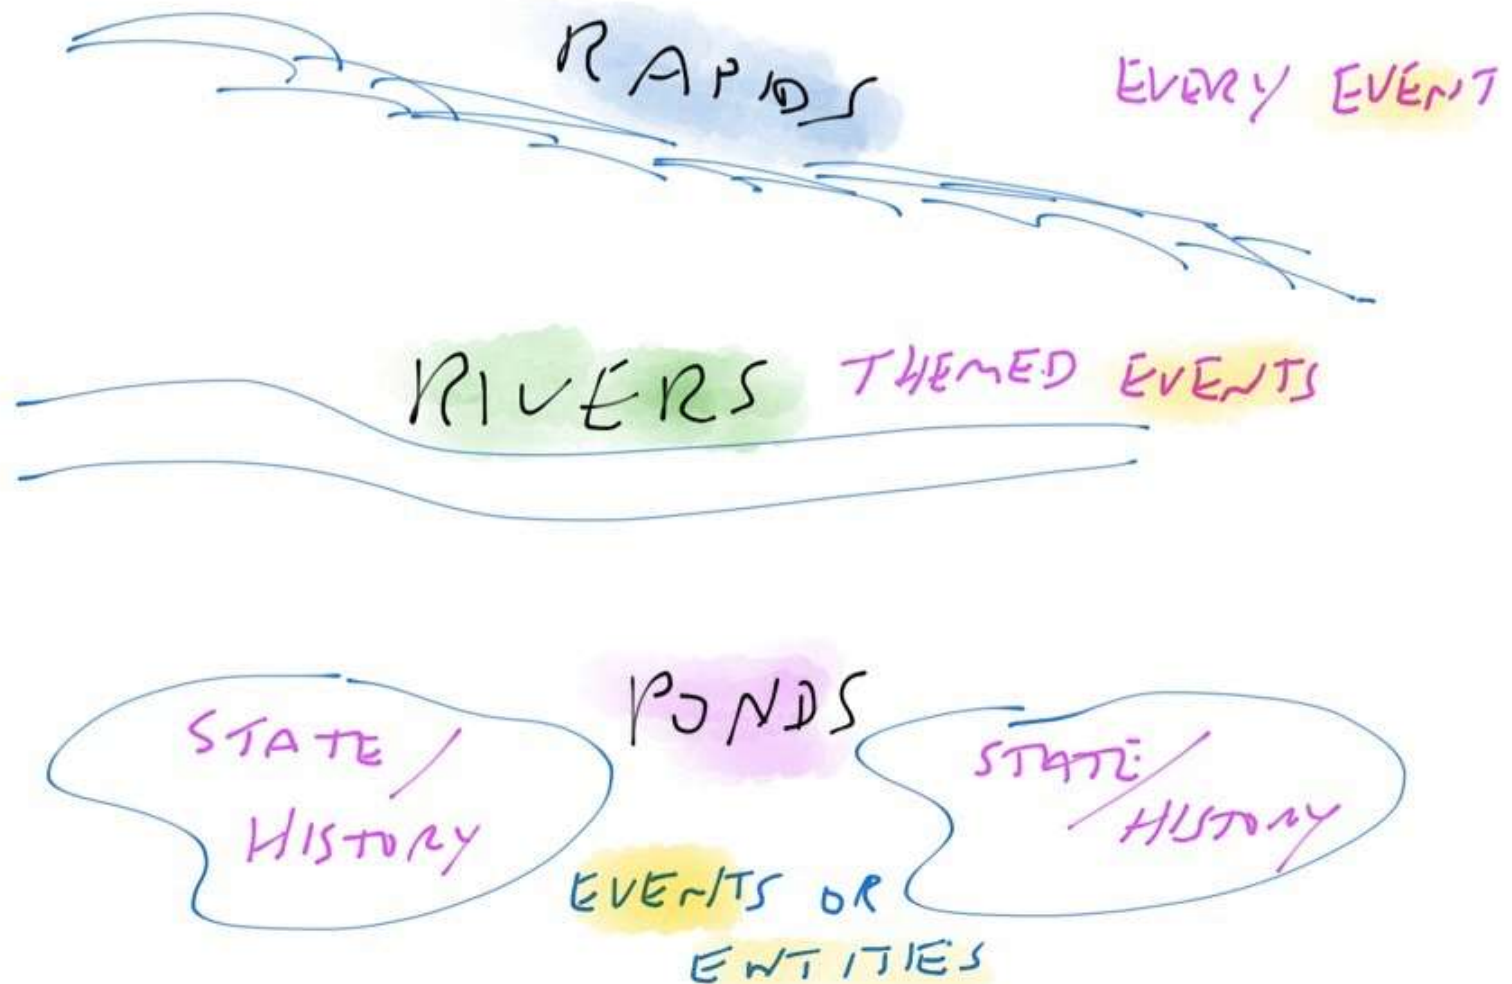 RAPIDS
EVERY EVENT
RIVERS
THEMED EVENTS
PONDS
STATE/
HISTORY
STATE/
HISTORY
EVENTS OR
ENTITIES